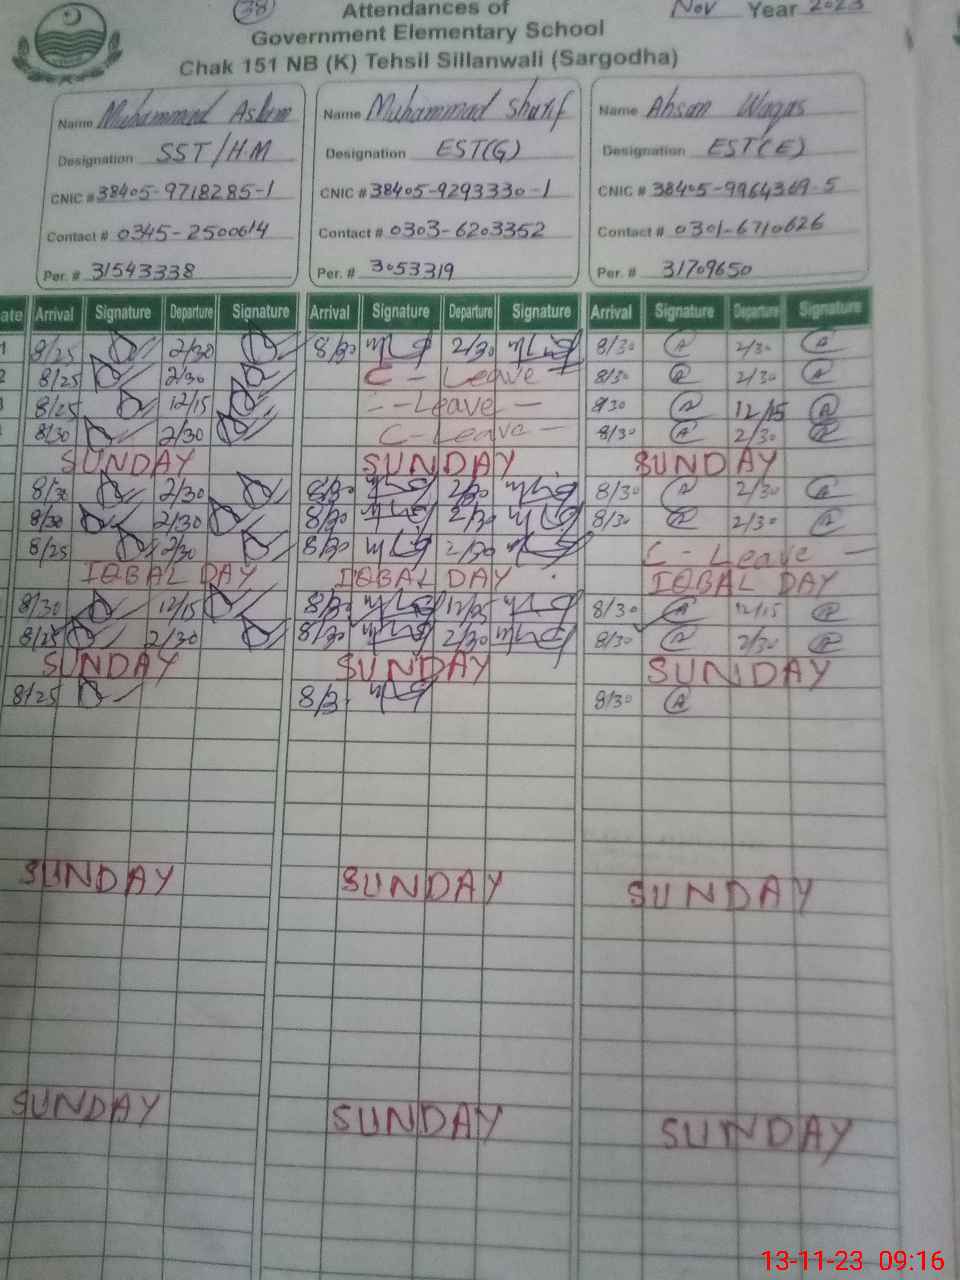 38 Attendances of Nov Year 2023
Government Elementary School
Chak 151 NB (K) Tehsil Sillanwali (Sargodha)
Name Muhammad Aslam Name Muhammad Sharif Name Ahsan Waqas
Designation SST/HM Designation EST(G) Designation EST(E)
CNIC # 38405-9718285-1 CNIC # 38405-9293330-1 CNIC # 38405-9964369-5
Contact # 0345-2500614 Contact # 0303-6203352 Contact # 0301-6710626
Per. # 31543338 Per. # 3053319 Per. # 31709650
ate Arrival Signature Departure Signature Arrival Signature Departure Signature Arrival Signature Departure Signature
1 8/25 2/30 8/30 2/30 8/30 2/30
2 8/25 2/30 C - Leave 8/30 2/30
8/25 12/15 - Leave - 8/30 12/15
8/30 2/30 C - Leave - 8/30 2/30
SUNDAY SUNDAY SUNDAY
8/30 2/30 8/30 2/30 8/30 2/30
8/30 2/30 8/30 2/30 8/30 2/30
8/25 2/30 8/30 2/30 C - Leave -
IQBAL DAY IQBAL DAY IQBAL DAY
8/30 12/15 8/3 12/15 8/30 12/15
8/25 2/30 8/30 2/30 8/30 2/30
SUNDAY SUNDAY SUNDAY
8/25 8/3 8/30
SUNDAY SUNDAY SUNDAY
SUNDAY SUNDAY SUNDAY
13-11-23 09:16